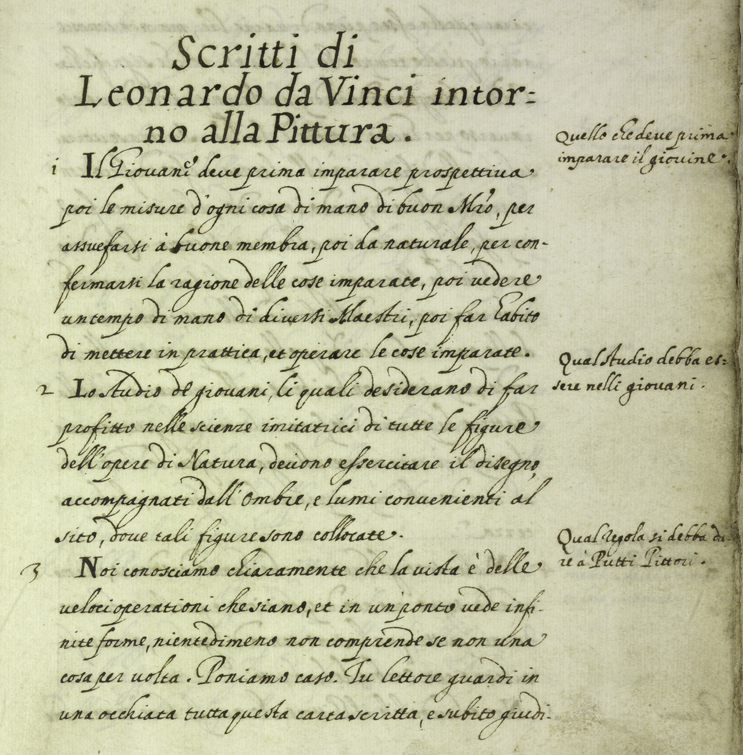 Scritti di
Leonardo da Vinci intor=
no alla Pittura.
Quello che deve prima
imparare il giovine.
1 Il Giovane deve prima imparare prospettiva
poi le misure d'ogni cosa di mano di buon Mro, per
assuefarsi à buone membra, poi da naturale, per con-
fermarsi la ragione delle cose imparate, poi vedere
un tempo di mano di diversi Maestri, poi far habito
di mettere in prattica, et operare le cose imparate.
Qual studio debba es=
sere nelli giovani.
2 Lo studio de giovani, li quali desiderano di far
profitto nelle scienze imitatrici di tutte le figure
dell'opere di Natura, devono essercitare il disegno,
accompagnati dall'ombre, e lumi convenienti al
sito, dove tali figure sono collocate.
Qual regola si debba da
re à Putti Pittori.
3 Noi conosciamo chiaramente che la vista è delle
veloci operationi che siano, et in un ponto vede infi-
nite forme, nientedimeno non comprende se non una
cosa per volta. Poniamo caso. Tu lettore guardi in
una occhiata tutta questa carta scritta, e subito giudi-